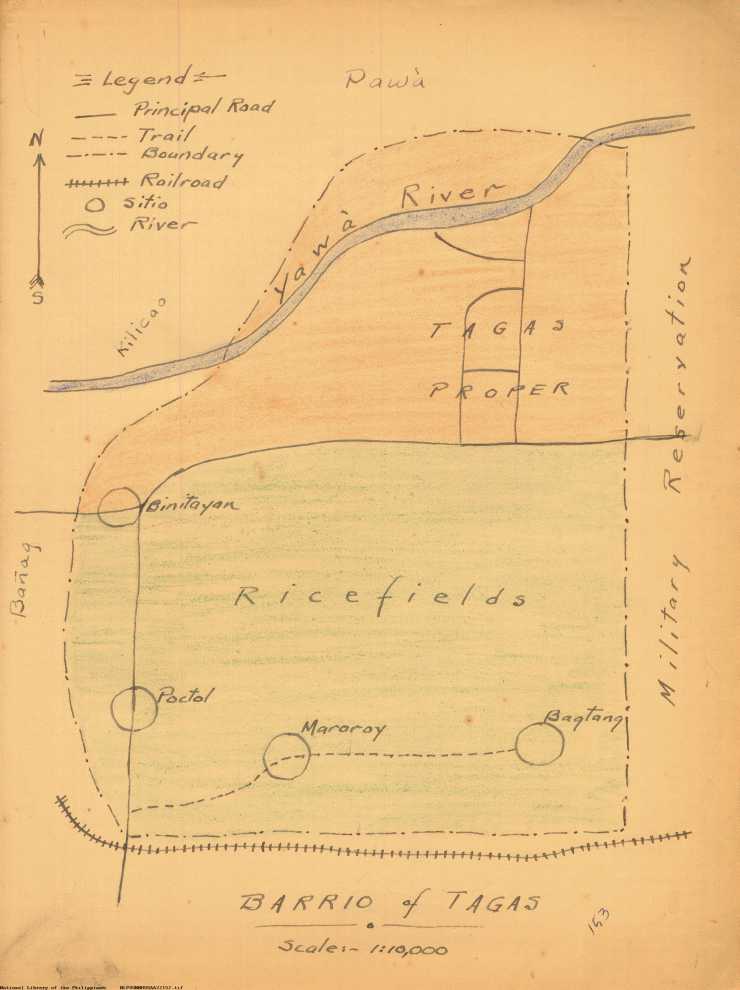 Legend
Principal Road
Trail
Boundary
Railroad
Sitio
River
N
S
Pawà
Yawà River
Kilicao
TAGAS
PROPER
Military Reservation
Binitayan
Bañag
Ricefields
Poctol
Maroroy
Bagtang
BARRIO of TAGAS
Scale:- 1:10,000
153
National Library of the Philippines